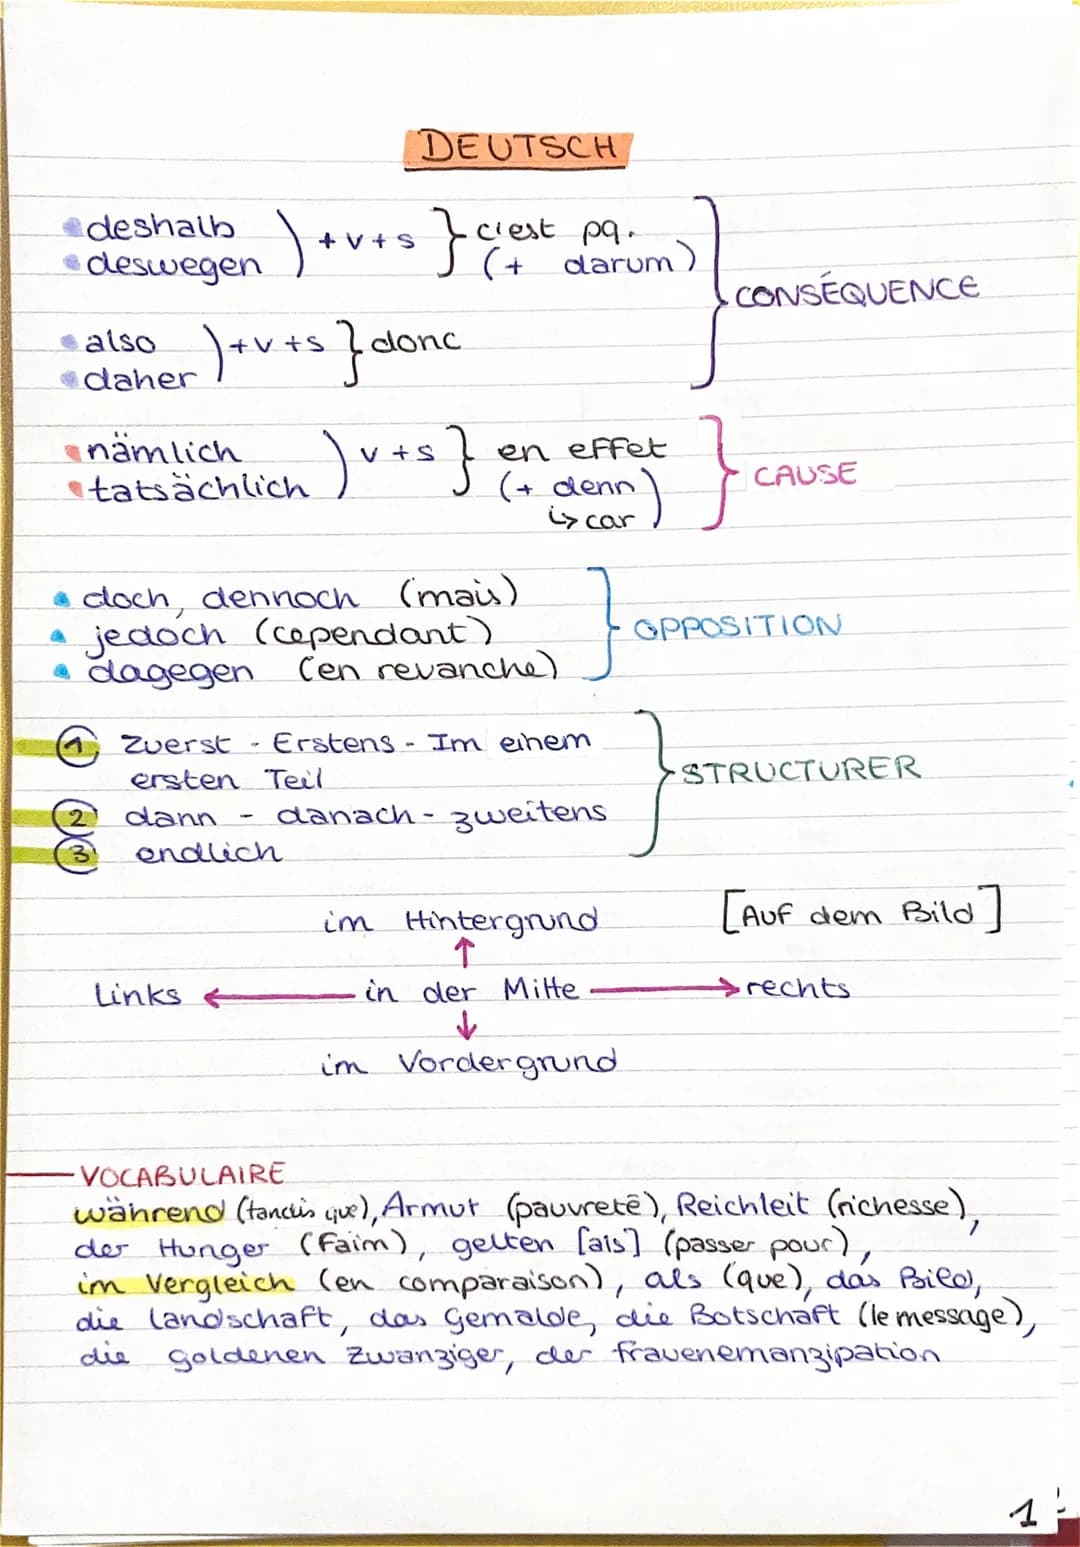 DEUTSCH
deshalb
deswegen
+ v + s
c'est pq.
(+ darum)
CONSÉQUENCE
also
daher
+ v + s
donc
nämlich
tatsächlich
v + s
en effet
(+ denn)
↳ car
CAUSE
doch, dennoch (mais)
jedoch (cependant)
dagegen (en revanche)
OPPOSITION
1 Zuerst - Erstens - Im einem
ersten Teil
2 dann - danach - zweitens
3 endlich
STRUCTURER
im Hintergrund
[Auf dem Bild]
Links ← in der Mitte → rechts
im Vordergrund
VOCABULAIRE
während (tandis que), Armut (pauvreté), Reichleit (richesse),
der Hunger (Faim), gelten [als] (passer pour),
im Vergleich (en comparaison), als (que), das Bild,
die landschaft, das Gemalde, die Botschaft (le message),
die goldenen Zwanziger, der frauenemanzipation
1